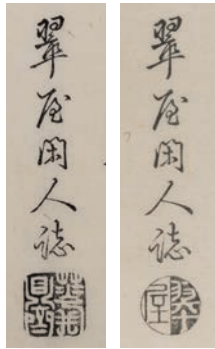 翠屋閑人誌
翠屋閑人誌
翠屋